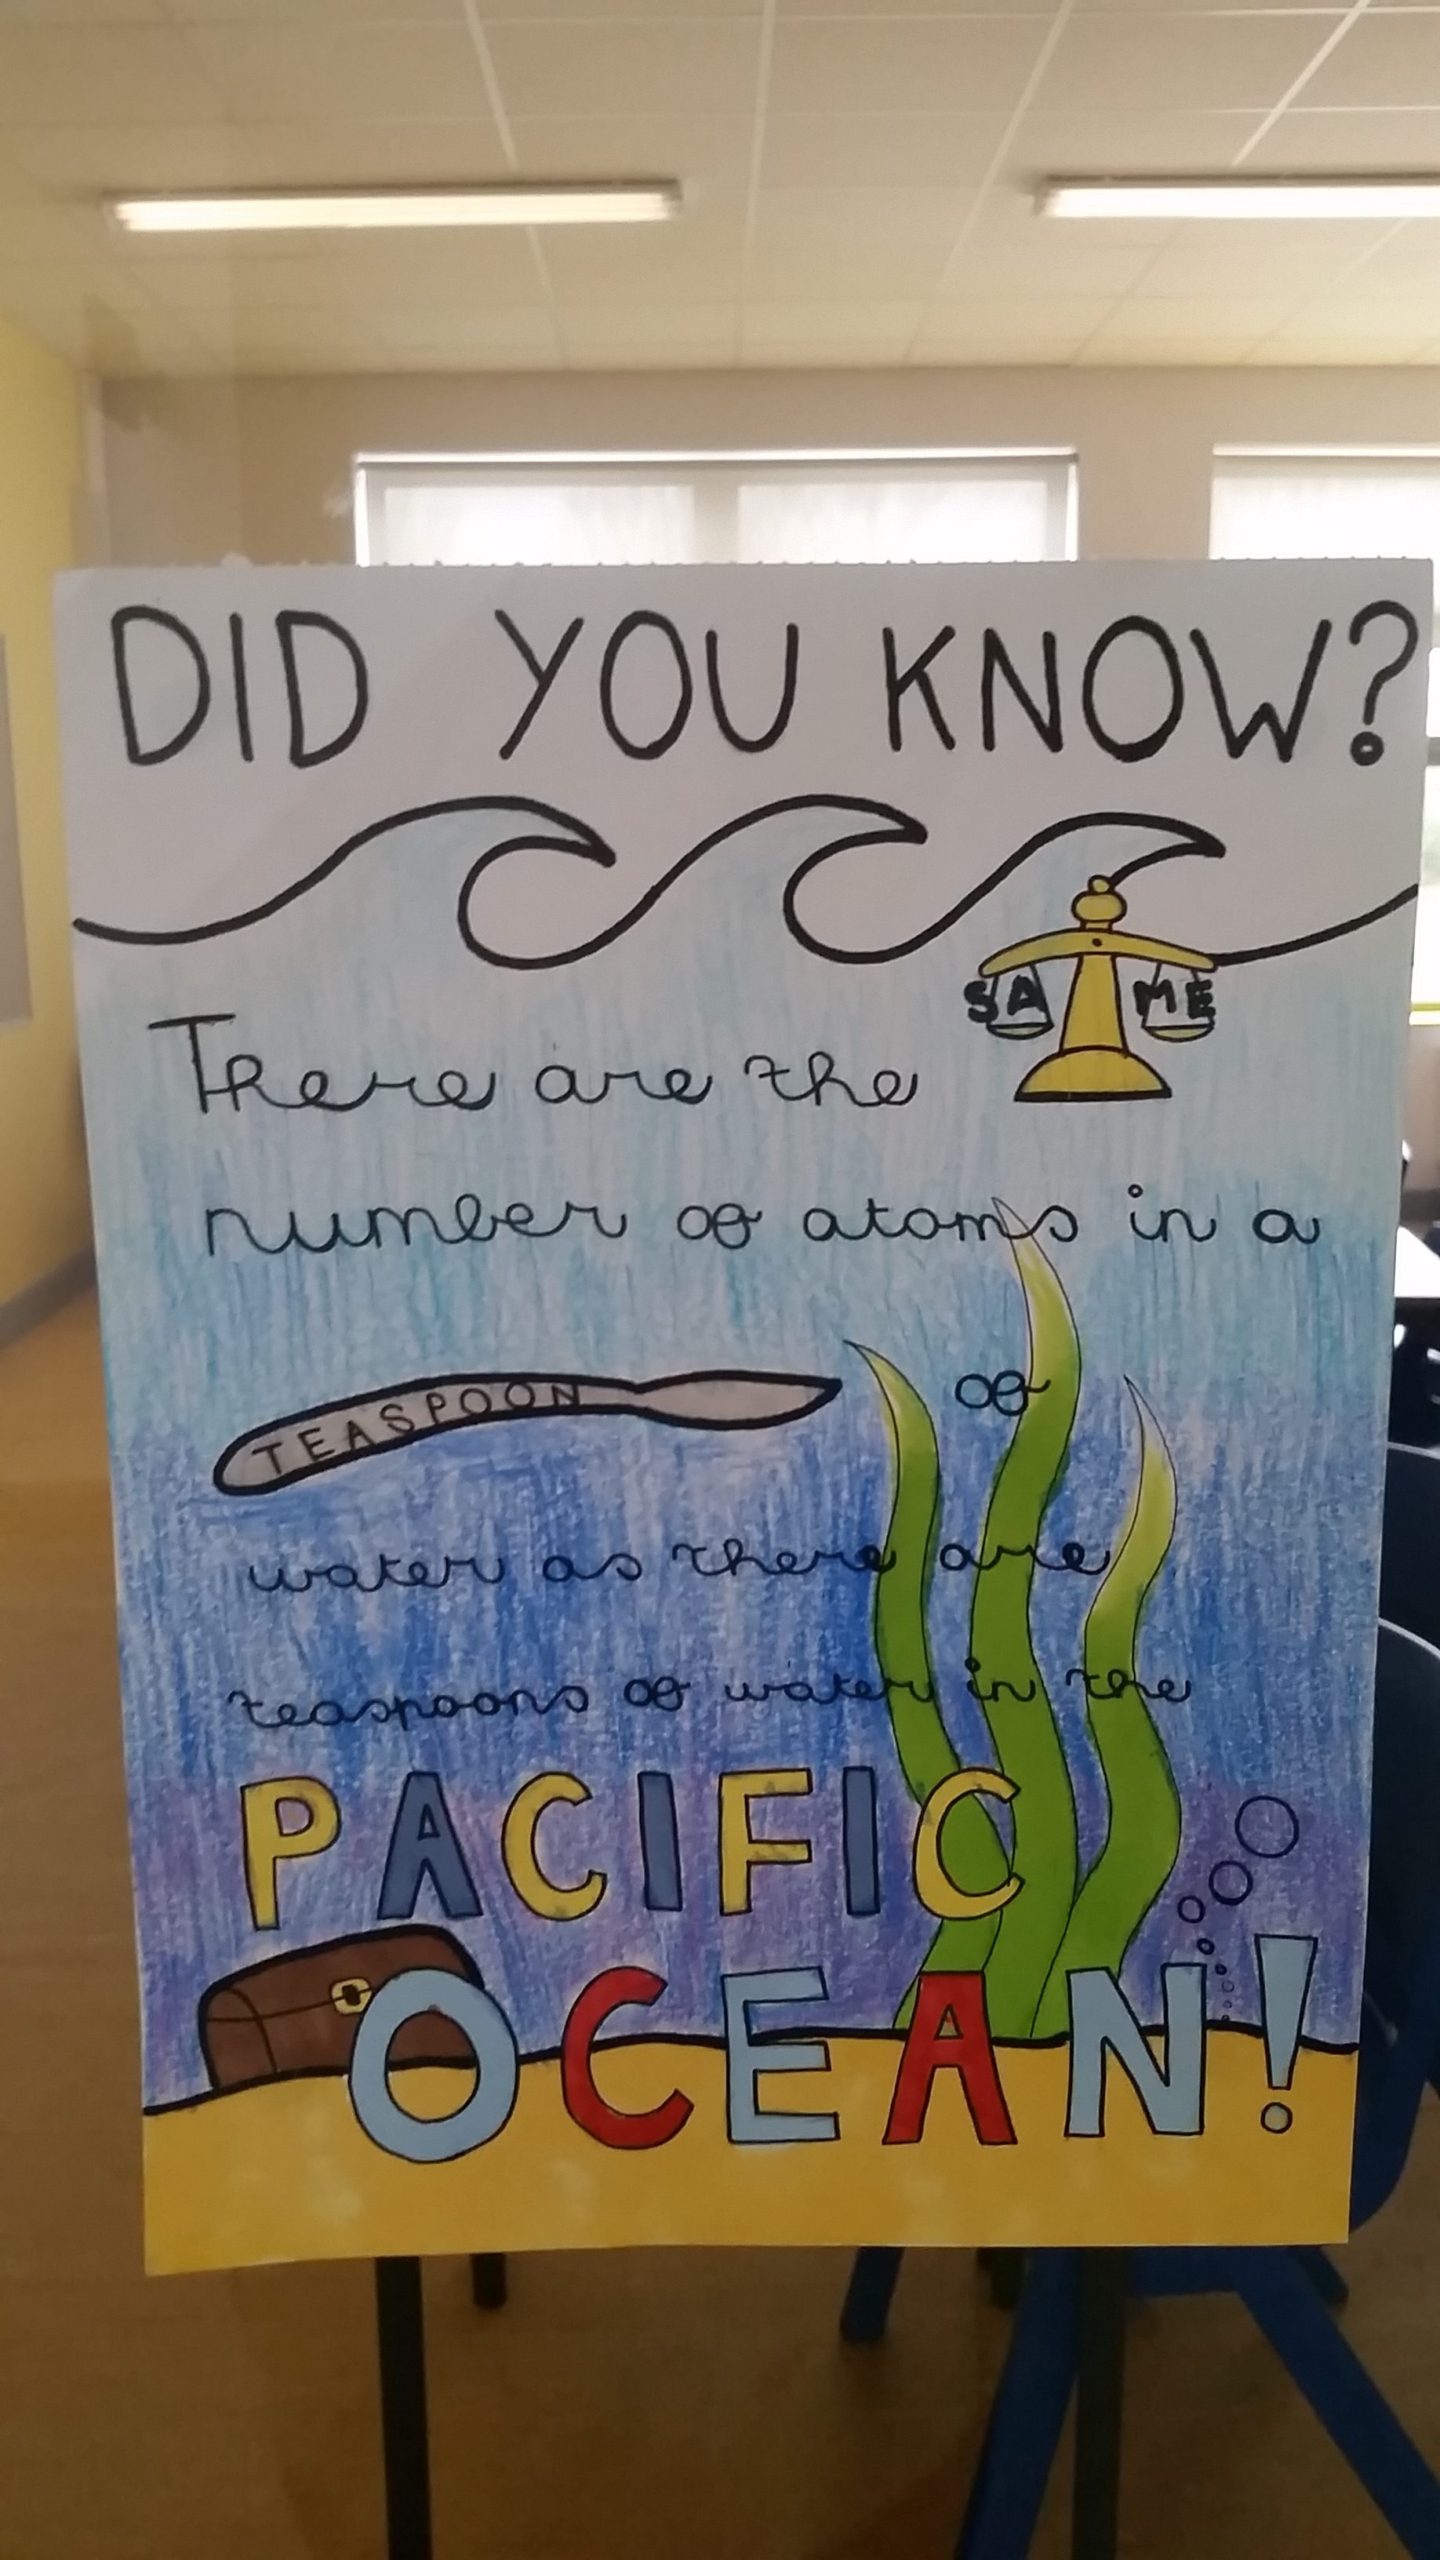 DID YOU KNOW?
There are the SAME
number of atoms in a
TEASPOON of
water as there are
teaspoons of water in the
PACIFIC
OCEAN!